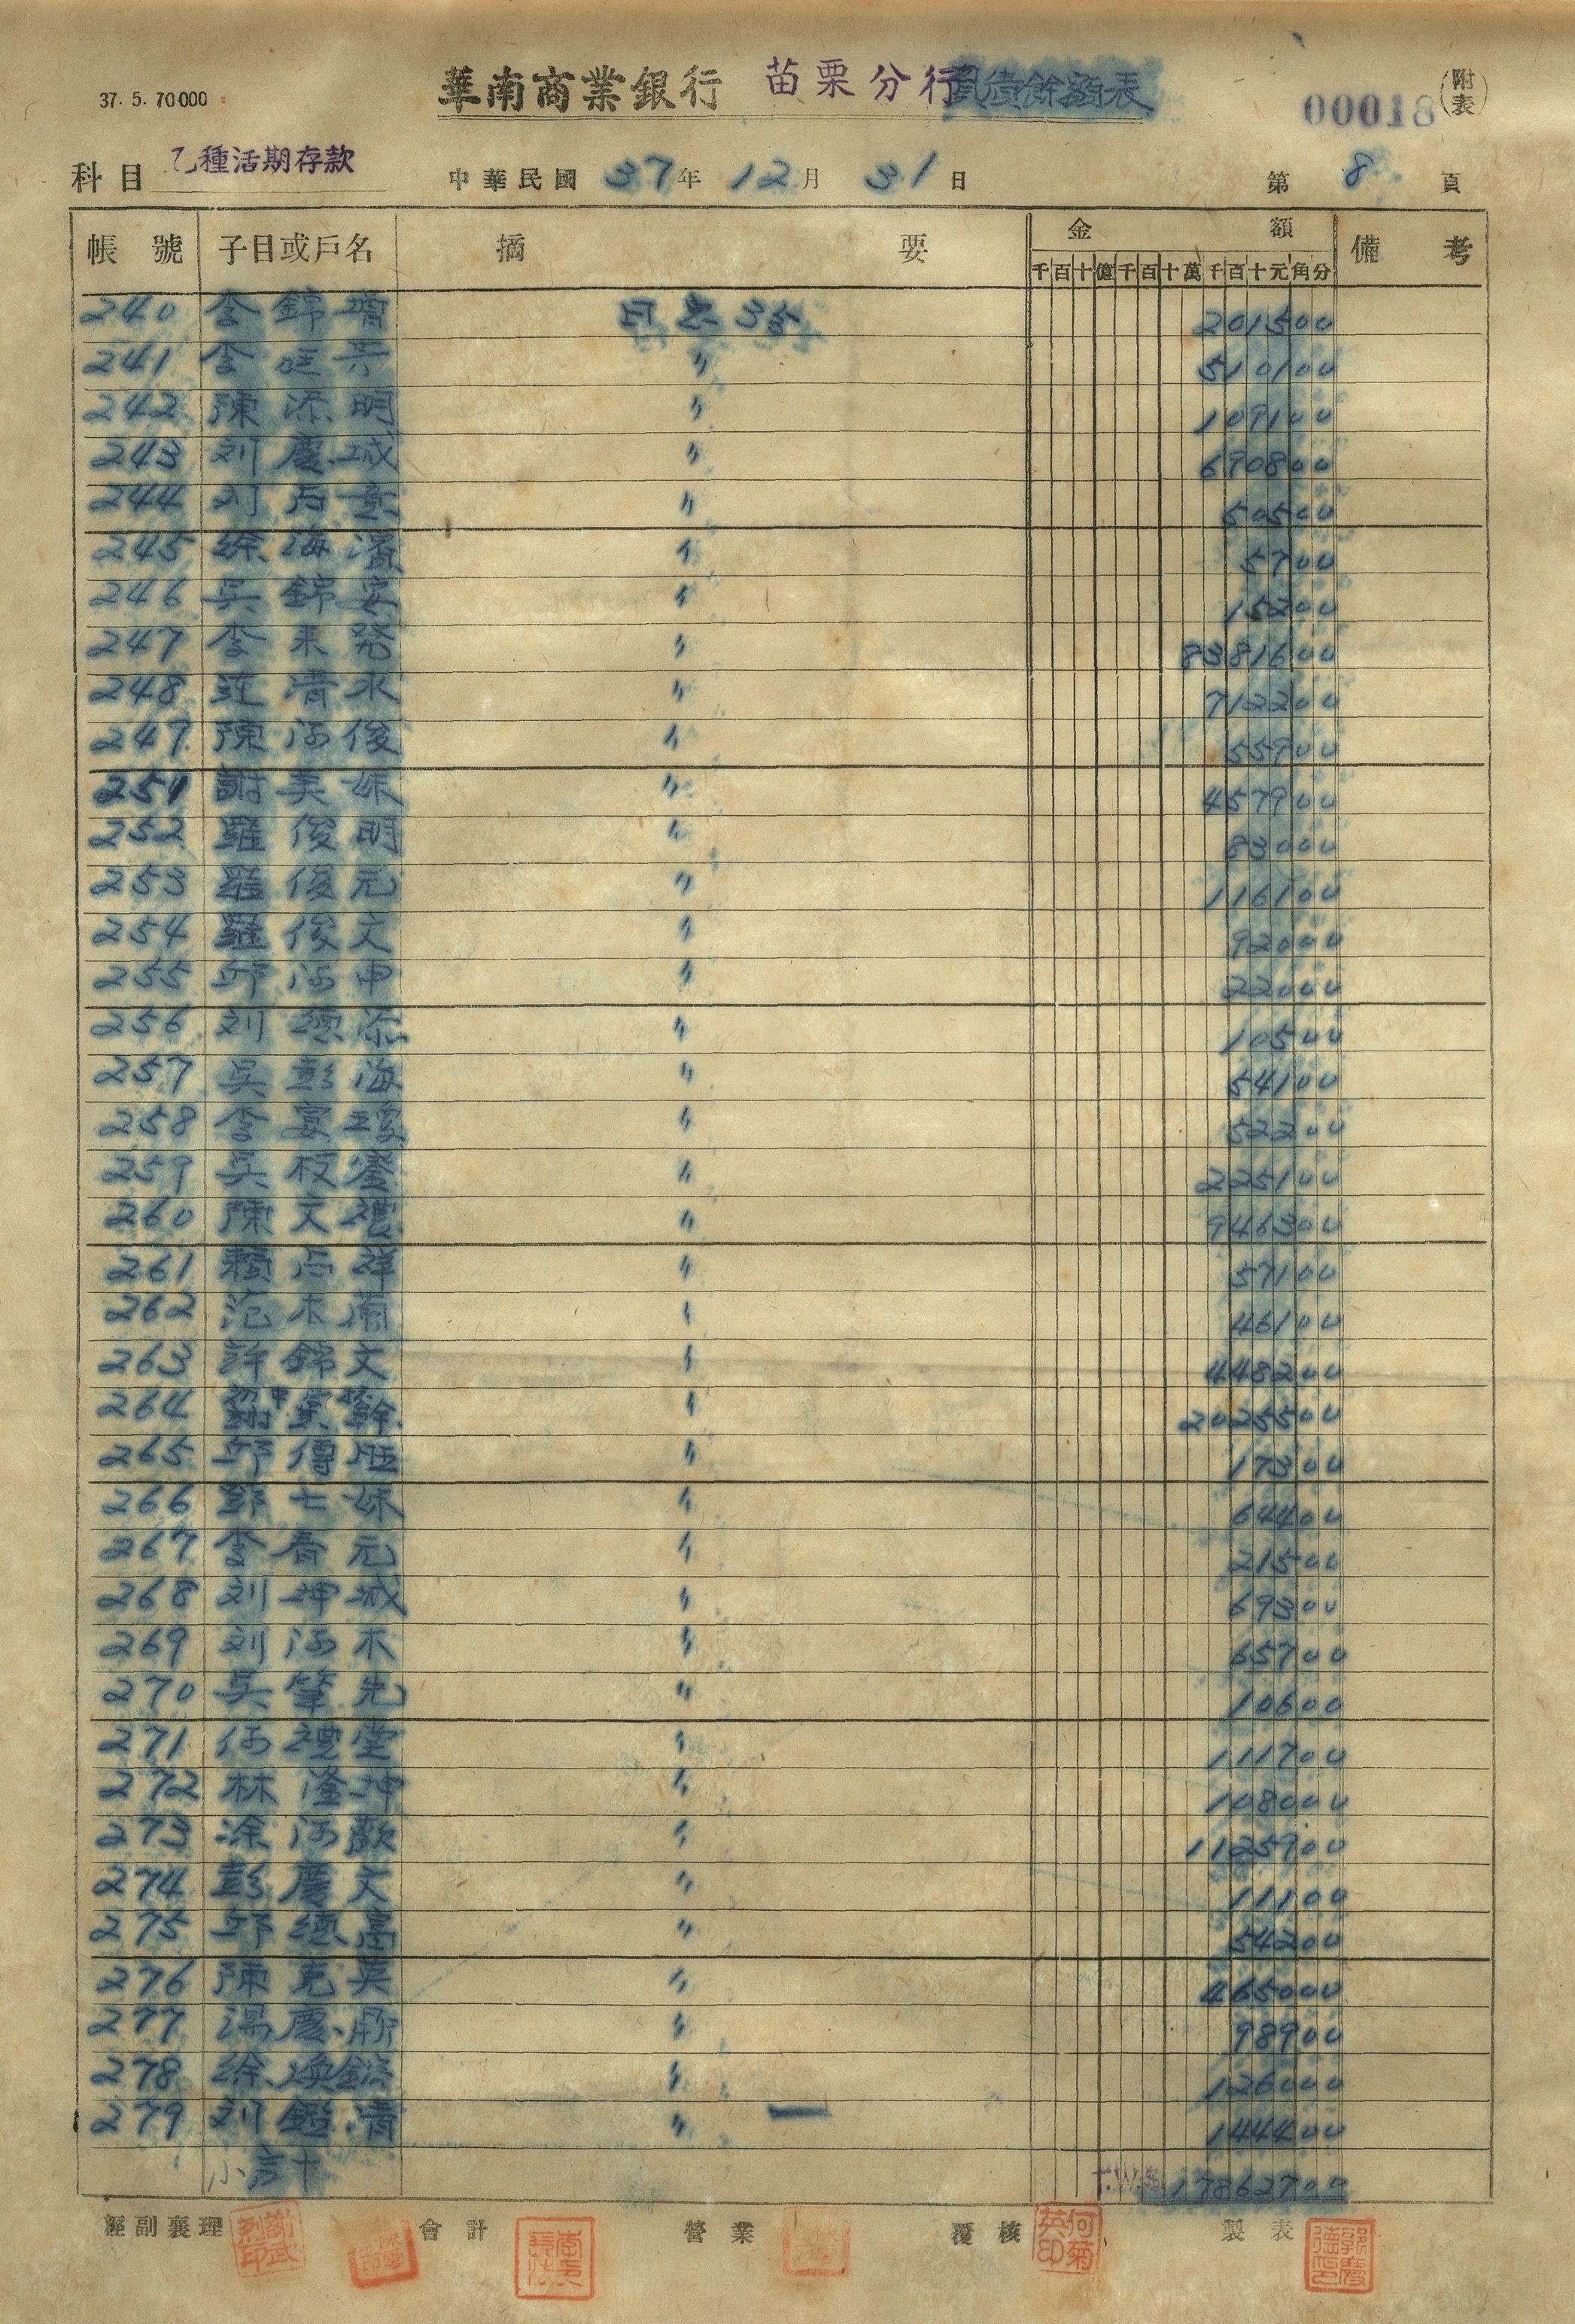 37. 5. 70000
華南商業銀行 苗栗分行負債餘額表
00018 (附表)
科目 乙種活期存款 中華民國 37年 12月 31日 第 8 頁
帳號 子目或戶名 摘要 金額 備考
千百十億千百十萬千百十元角分
240 李錦 日息3分 201500
241 李廷 〃 510100
242 陳添明 〃 109100
243 刘慶城 〃 690800
244 刘 〃 50500
245 徐海 〃 5700
246 吳錦安 〃 15200
247 李来発 〃 8381600
248 連清水 〃 712200
249 陳阿俊 〃 55900
251 謝美妹 〃 457900
252 羅俊明 〃 83000
253 羅俊元 〃 116100
254 羅俊文 〃 92000
255 邱阿申 〃 22000
256 刘德添 〃 10500
257 吳彭海 〃 54100
258 李宴瓊 〃 52200
259 吳枝 〃 225100
260 陳文禮 〃 946300
261 賴 祥 〃 57100
262 范木蘭 〃 46100
263 許錦文 〃 448200
264 初中 謝業幹 〃 2025500
265 邱傳旺 〃 17300
266 鄧七妹 〃 64400
267 李春元 〃 21500
268 刘坤城 〃 69300
269 刘阿木 〃 65700
270 吳肇先 〃 10600
271 何禮堂 〃 111700
272 林隆坤 〃 108000
273 涂阿歡 〃 1125900
274 彭慶文 〃 11100
275 邱德高 〃 54200
276 陳克英 〃 465000
277 湯慶 〃 98900
278 徐煥 〃 126000
279 刘鑑清 〃 144400
小計 17862700
經副襄理 會計 營業 覆核 製表
何菊英印
郭慶德印